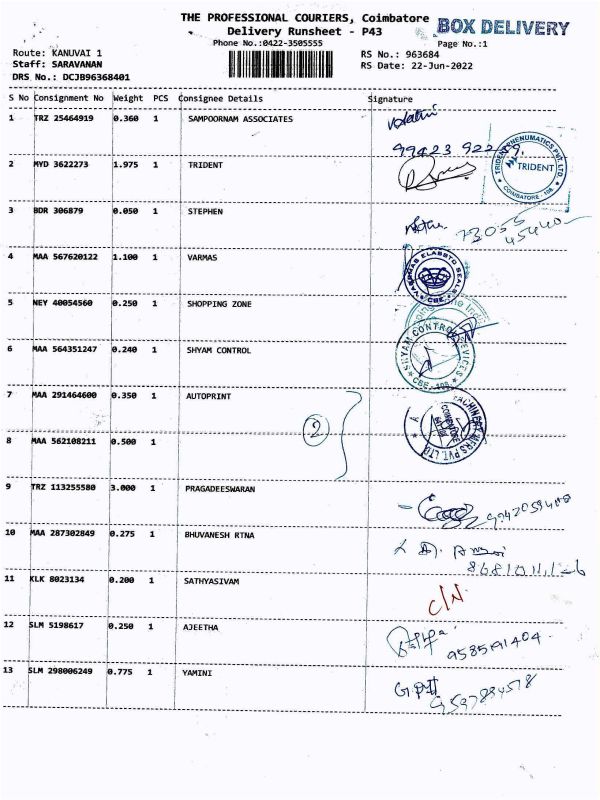 THE PROFESSIONAL COURIERS, Coimbatore
BOX DELIVERY
Delivery Runsheet - P43
Phone No.:0422-3505555
Page No.:1
Route: KANUVAI 1
RS No.: 963684
Staff: SARAVANAN
RS Date: 22-Jun-2022
DRS No.: DCJB96368401
S No Consignment No Weight PCS Consignee Details Signature
1 TRZ 25464919 0.360 1 SAMPOORNAM ASSOCIATES
2 MYD 3622273 1.975 1 TRIDENT
TRIDENT PNEUMATICS PVT. LTD
TRIDENT
COIMBATORE
3 BDR 306879 0.050 1 STEPHEN
73055
45440
4 MAA 567620122 1.100 1 VARMAS
VARMAS ELASSTO SEALS
CBE
5 NEY 40054560 0.250 1 SHOPPING ZONE
6 MAA 564351247 0.240 1 SHYAM CONTROL
SHYAM CONTROL DEVICES
CBE
7 MAA 291464600 0.350 1 AUTOPRINT
2
8 MAA 562108211 0.500 1
9 TRZ 113255580 3.000 1 PRAGADEESWARAN
10 MAA 287302849 0.275 1 BHUVANESH RTNA
11 KLK 8023134 0.200 1 SATHYASIVAM
C/N.
12 SLM 5198617 0.250 1 AJEETHA
13 SLM 298006249 0.775 1 YAMINI